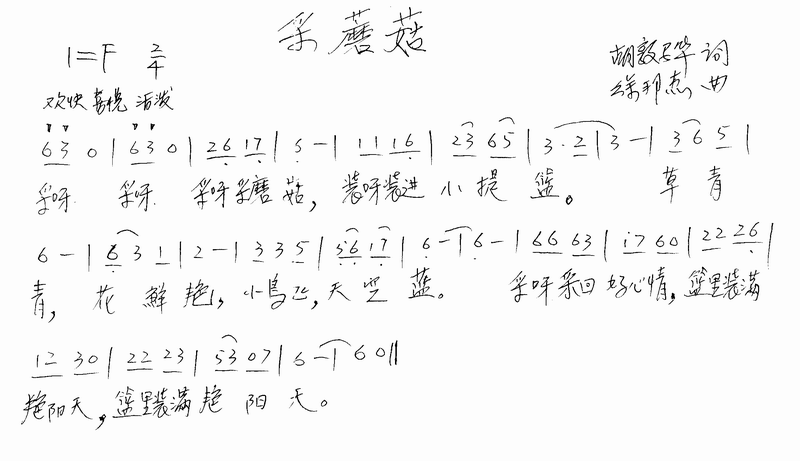 采蘑菇
1=F 2/4
胡敦华 词
徐邦杰 曲
欢快 喜悦 活泼
63 0 | 63 0 | 26 17 | 5 - | 11 16 | 23 65 | 3·2 | 3 - | 36 5 |
采呀 采呀 采呀采蘑菇, 装呀装进小提篮。 草青
6 - | 63 1 | 2 - | 33 5 | 56 17 | 6 - | 6 - | 66 63 | 17 60 | 22 26 |
青, 花鲜艳, 小鸟飞, 天空蓝。 采呀采回好心情, 篮里装满
12 30 | 22 23 | 53 07 | 6 - | 6 0 ||
艳阳天, 篮里装满艳阳天。